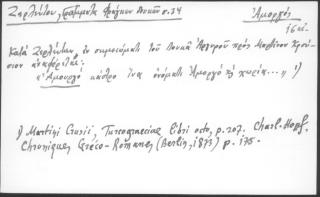 Ζερλέντου, Γράμματα Φράγκων Δουκῶν σ. 34
Ἀμοργός
16 αἰ.
Κατὰ Ζερλέντην, ἐν σημειώματι τοῦ Λουκᾶ Ἀργυροῦ πρὸς Μαρτῖνον Κρού-
σιον ἀναφέρεται:
"Ἀμουργὸ κάστρο ἕνα ὀνόματι Ἀμοργὸ κὲ χωρία..." 1)
1) Martini Crusii, Turcograeciae libri octo, p. 207. Charl. Hopf.
Chroniques Gréco-Romanes (Berlin, 1873) p. 175.